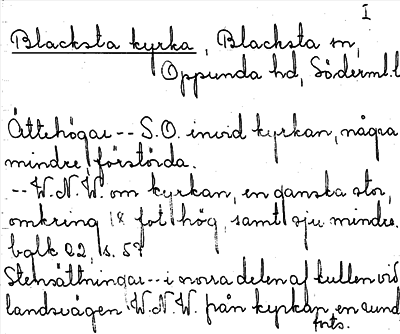 I
Blacksta kyrka, Blacksta sn,
Oppunda hd, Söderml.l
Ättehögar -- S.O. invid kyrkan, några
mindre, förstörda.
-- W.N.W. om kyrkan, en ganska stor,
omkring 18 fot hög, samt sju mindre.
balk 22, s. 5?
Stensättningar -- i norra delen af kullen vid
landsvägen W.N.W. från kyrkan, en rund
forts.